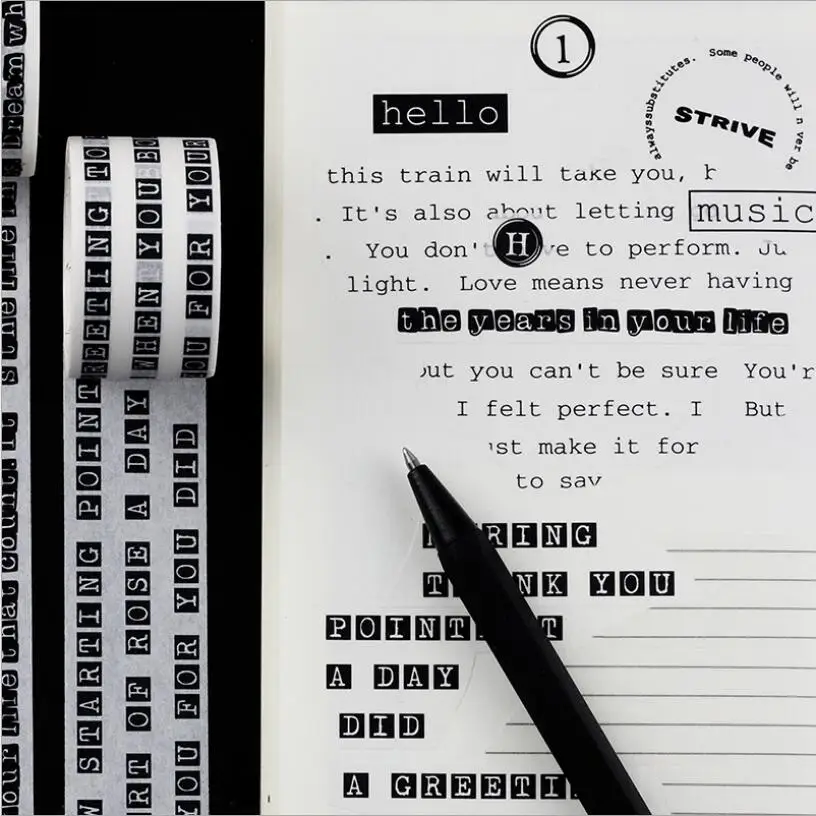 1
hello
alwayssubstitutes. Some people will n ver be
STRIVE
this train will take you,
. It's also about letting
music
. You don't
H
ve to perform.
light. Love means never having
the years in your life
but you can't be sure You'r
I felt perfect. I But
make it for
to say
RING
T NK YOU
POINT T
A DAY
DID
A GREETI
REETING TO
WHEN YOU BO
OU FOR YOUR
W STARTING POINT
RT OF ROSE A DAY
YOU FOR YOU DID
Dream wh
s the life in
our life that count. It